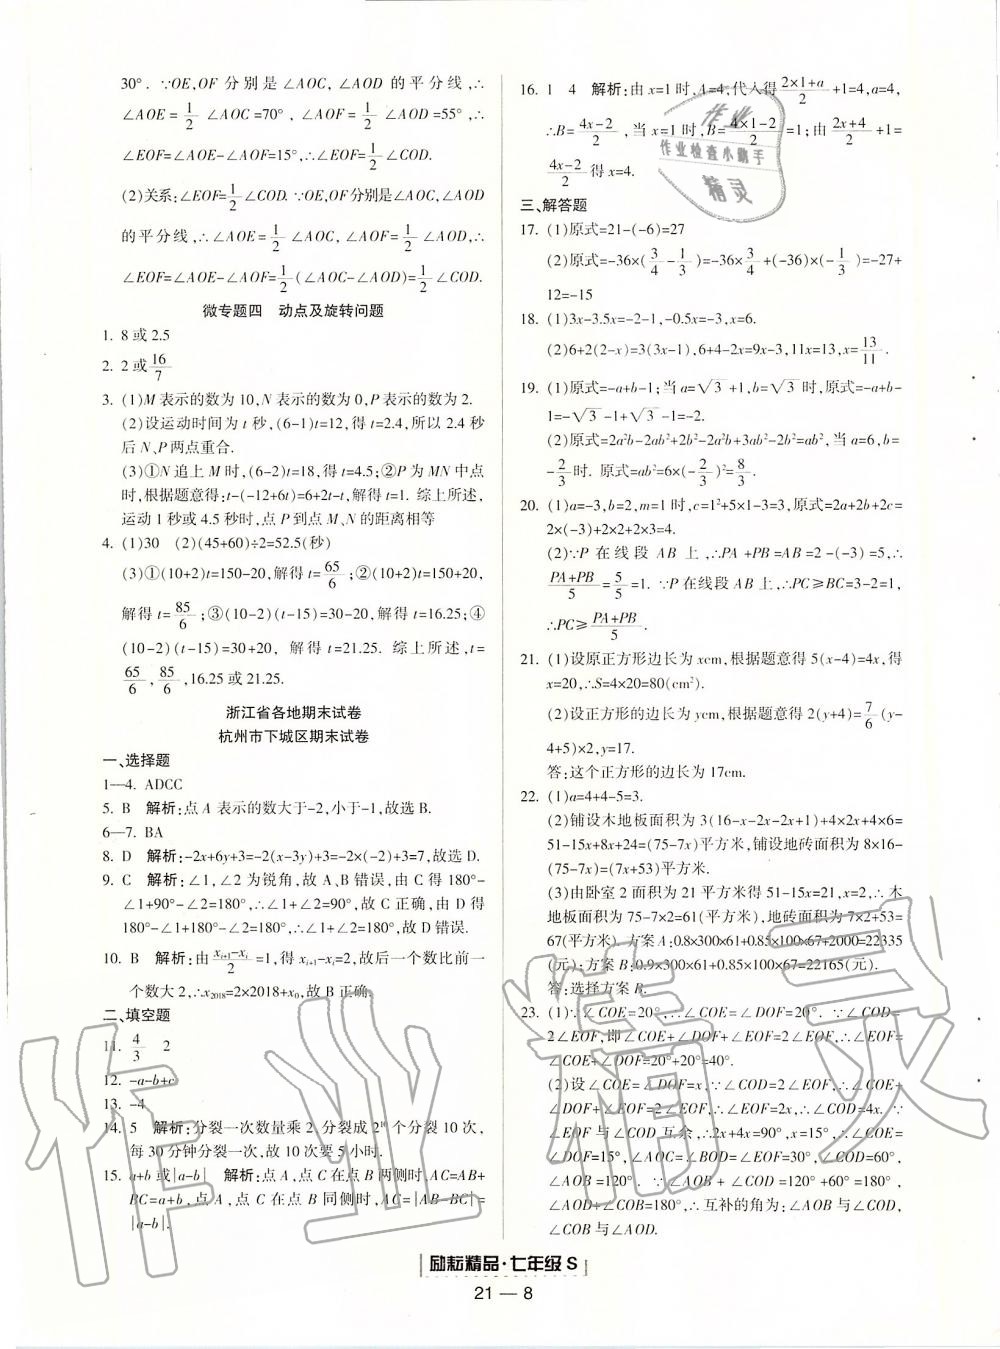 30°. ∵OE,OF 分别是 ∠AOC, ∠AOD 的平分线,∴
∠AOE = 1/2 ∠AOC=70°, ∠AOF = 1/2 ∠AOD =55°,∴
∠EOF=∠AOE-∠AOF=15°,∴∠EOF=1/2∠COD.
(2)关系:∠EOF=1/2∠COD. ∵OE,OF分别是∠AOC,∠AOD
的平分线,∴∠AOE=1/2∠AOC,∠AOF=1/2∠AOD,∴
∠EOF=∠AOE-∠AOF=1/2(∠AOC-∠AOD)=1/2∠COD.
微专题四 动点及旋转问题
1. 8或2.5
2. 2或16/7
3. (1)M表示的数为10,N表示的数为0,P表示的数为2.
(2)设运动时间为t秒,(6-1)t=12,得t=2.4,所以2.4秒
后N、P两点重合.
(3)①N追上M时,(6-2)t=18,得t=4.5;②P为MN中点
时,根据题意得:t-(-12+6t)=6+2t-t,解得t=1. 综上所述,
运动1秒或4.5秒时,点P到点M、N的距离相等
4. (1)30 (2)(45+60)÷2=52.5(秒)
(3)①(10+2)t=150-20,解得t=65/6;②(10+2)t=150+20,
解得t=85/6;③(10-2)(t-15)=30-20,解得t=16.25;④
(10-2)(t-15)=30+20, 解得t=21.25. 综上所述,t=
65/6,85/6,16.25或21.25.
浙江省各地期末试卷
杭州市下城区期末试卷
一、选择题
1—4. ADCC
5. B 解析:点A表示的数大于-2,小于-1,故选B.
6—7. BA
8. D 解析:-2x+6y+3=-2(x-3y)+3=-2×(-2)+3=7,故选D.
9. C 解析:∠1,∠2为锐角,故A、B错误,由C得180°-
∠1+90°-∠2=180°,∴∠1+∠2=90°,故C正确,由D得
180°-∠1+180°-∠2=180°,∴∠1+∠2=180°,故D错误.
10. B 解析:由(xᵢ₊₁-xᵢ)/2=1,得xᵢ₊₁-xᵢ=2,故后一个数比前一
个数大2,∴x₂₀₁₈=2×2018+x₀,故B正确.
二、填空题
11. 4/3 2
12. -a-b+c
13. -4
14. 5 解析:分裂一次数量乘2,分裂成2ⁿ个分裂10次,
每30分钟分裂一次,故10次要5小时.
15. a+b或|a-b| 解析:点A,点C在点B两侧时,AC=AB+
BC=a+b,点A,点C在点B同侧时,AC=|AB-BC|=
|a-b|.
16. 1 4 解析:由x=1时,A=4,代入得(2×1+a)/2+1=4,a=4,
∴B=(4x-2)/2,当x=1时,B=(4×1-2)/2=1;由(2x+4)/2+1=
(4x-2)/2得x=4.
三、解答题
17. (1)原式=21-(-6)=27
(2)原式=-36×(3/4-1/3)=-36×3/4+(-36)×(-1/3)=-27+
12=-15
18. (1)3x-3.5x=-2-1,-0.5x=-3,x=6.
(2)6+2(2-x)=3(3x-1),6+4-2x=9x-3,11x=13,x=13/11.
19. (1)原式=-a+b-1;当a=√3+1,b=√3时,原式=-a+b-
1=-√3-1+√3-1=-2.
(2)原式=2a²b-2ab²+2b²-2a²b+3ab²-2b²=ab²,当a=6,b=
-2/3时. 原式=ab²=6×(-2/3)²=8/3.
20. (1)a=-3,b=2,m=1时,c=1²+5×1-3=3,原式=2a+2b+2c=
2×(-3)+2×2+2×3=4.
(2)∵P在线段AB上,∴PA+PB=AB=2-(-3)=5,∴
(PA+PB)/5=5/5=1. ∵P在线段AB上,∴PC≥BC=3-2=1,
∴PC≥(PA+PB)/5.
21. (1)设原正方形边长为xcm,根据题意得5(x-4)=4x,得
x=20,∴S=4×20=80(cm²).
(2)设正方形的边长为ycm,根据题意得2(y+4)=7/6(y-
4+5)×2,y=17.
答:这个正方形的边长为17cm.
22. (1)a=4+4-5=3.
(2)铺设木地板面积为3(16-x-2x-2x+1)+4×2x+4×6=
51-15x+8x+24=(75-7x)平方米,铺设地砖面积为8×16-
(75-7x)=(7x+53)平方米.
(3)由卧室2面积为21平方米得51-15x=21,x=2,∴木
地板面积为75-7×2=61(平方米),地砖面积为7×2+53=
67(平方米). 方案A:0.8×300×61+0.85×100×67+2000=22335
(元);方案B:0.9×300×61+0.85×100×67=22165(元).
答:选择方案B.
23. (1)∵∠COE=20°,∴∠COE=∠DOF=20°. ∵∠COD=
2∠EOF,即∠COE+∠DOF+∠EOF=2∠EOF,∴∠EOF=
∠COE+∠DOF=20°+20°=40°.
(2)设∠COE=∠DOF=x,∵∠COD=2∠EOF,∴∠COE+
∠DOF+∠EOF=2∠EOF,∴∠EOF=2x,∴∠COD=4x. ∵
∠EOF与∠COD互余,∴2x+4x=90°,x=15°,∴∠COE=
∠DOF=15°,∴∠AOC=∠BOD=∠EOF=30°,∠COD=60°,
∠AOB=120°. ∵∠AOB+∠COD=120°+60°=180°,
∠AOD+∠COB=180°,∴互补的角为:∠AOB与∠COD,
∠COB与∠AOD.
励耘精品·七年级S
21 — 8
作业
作业检查小助手
精灵
作业精灵